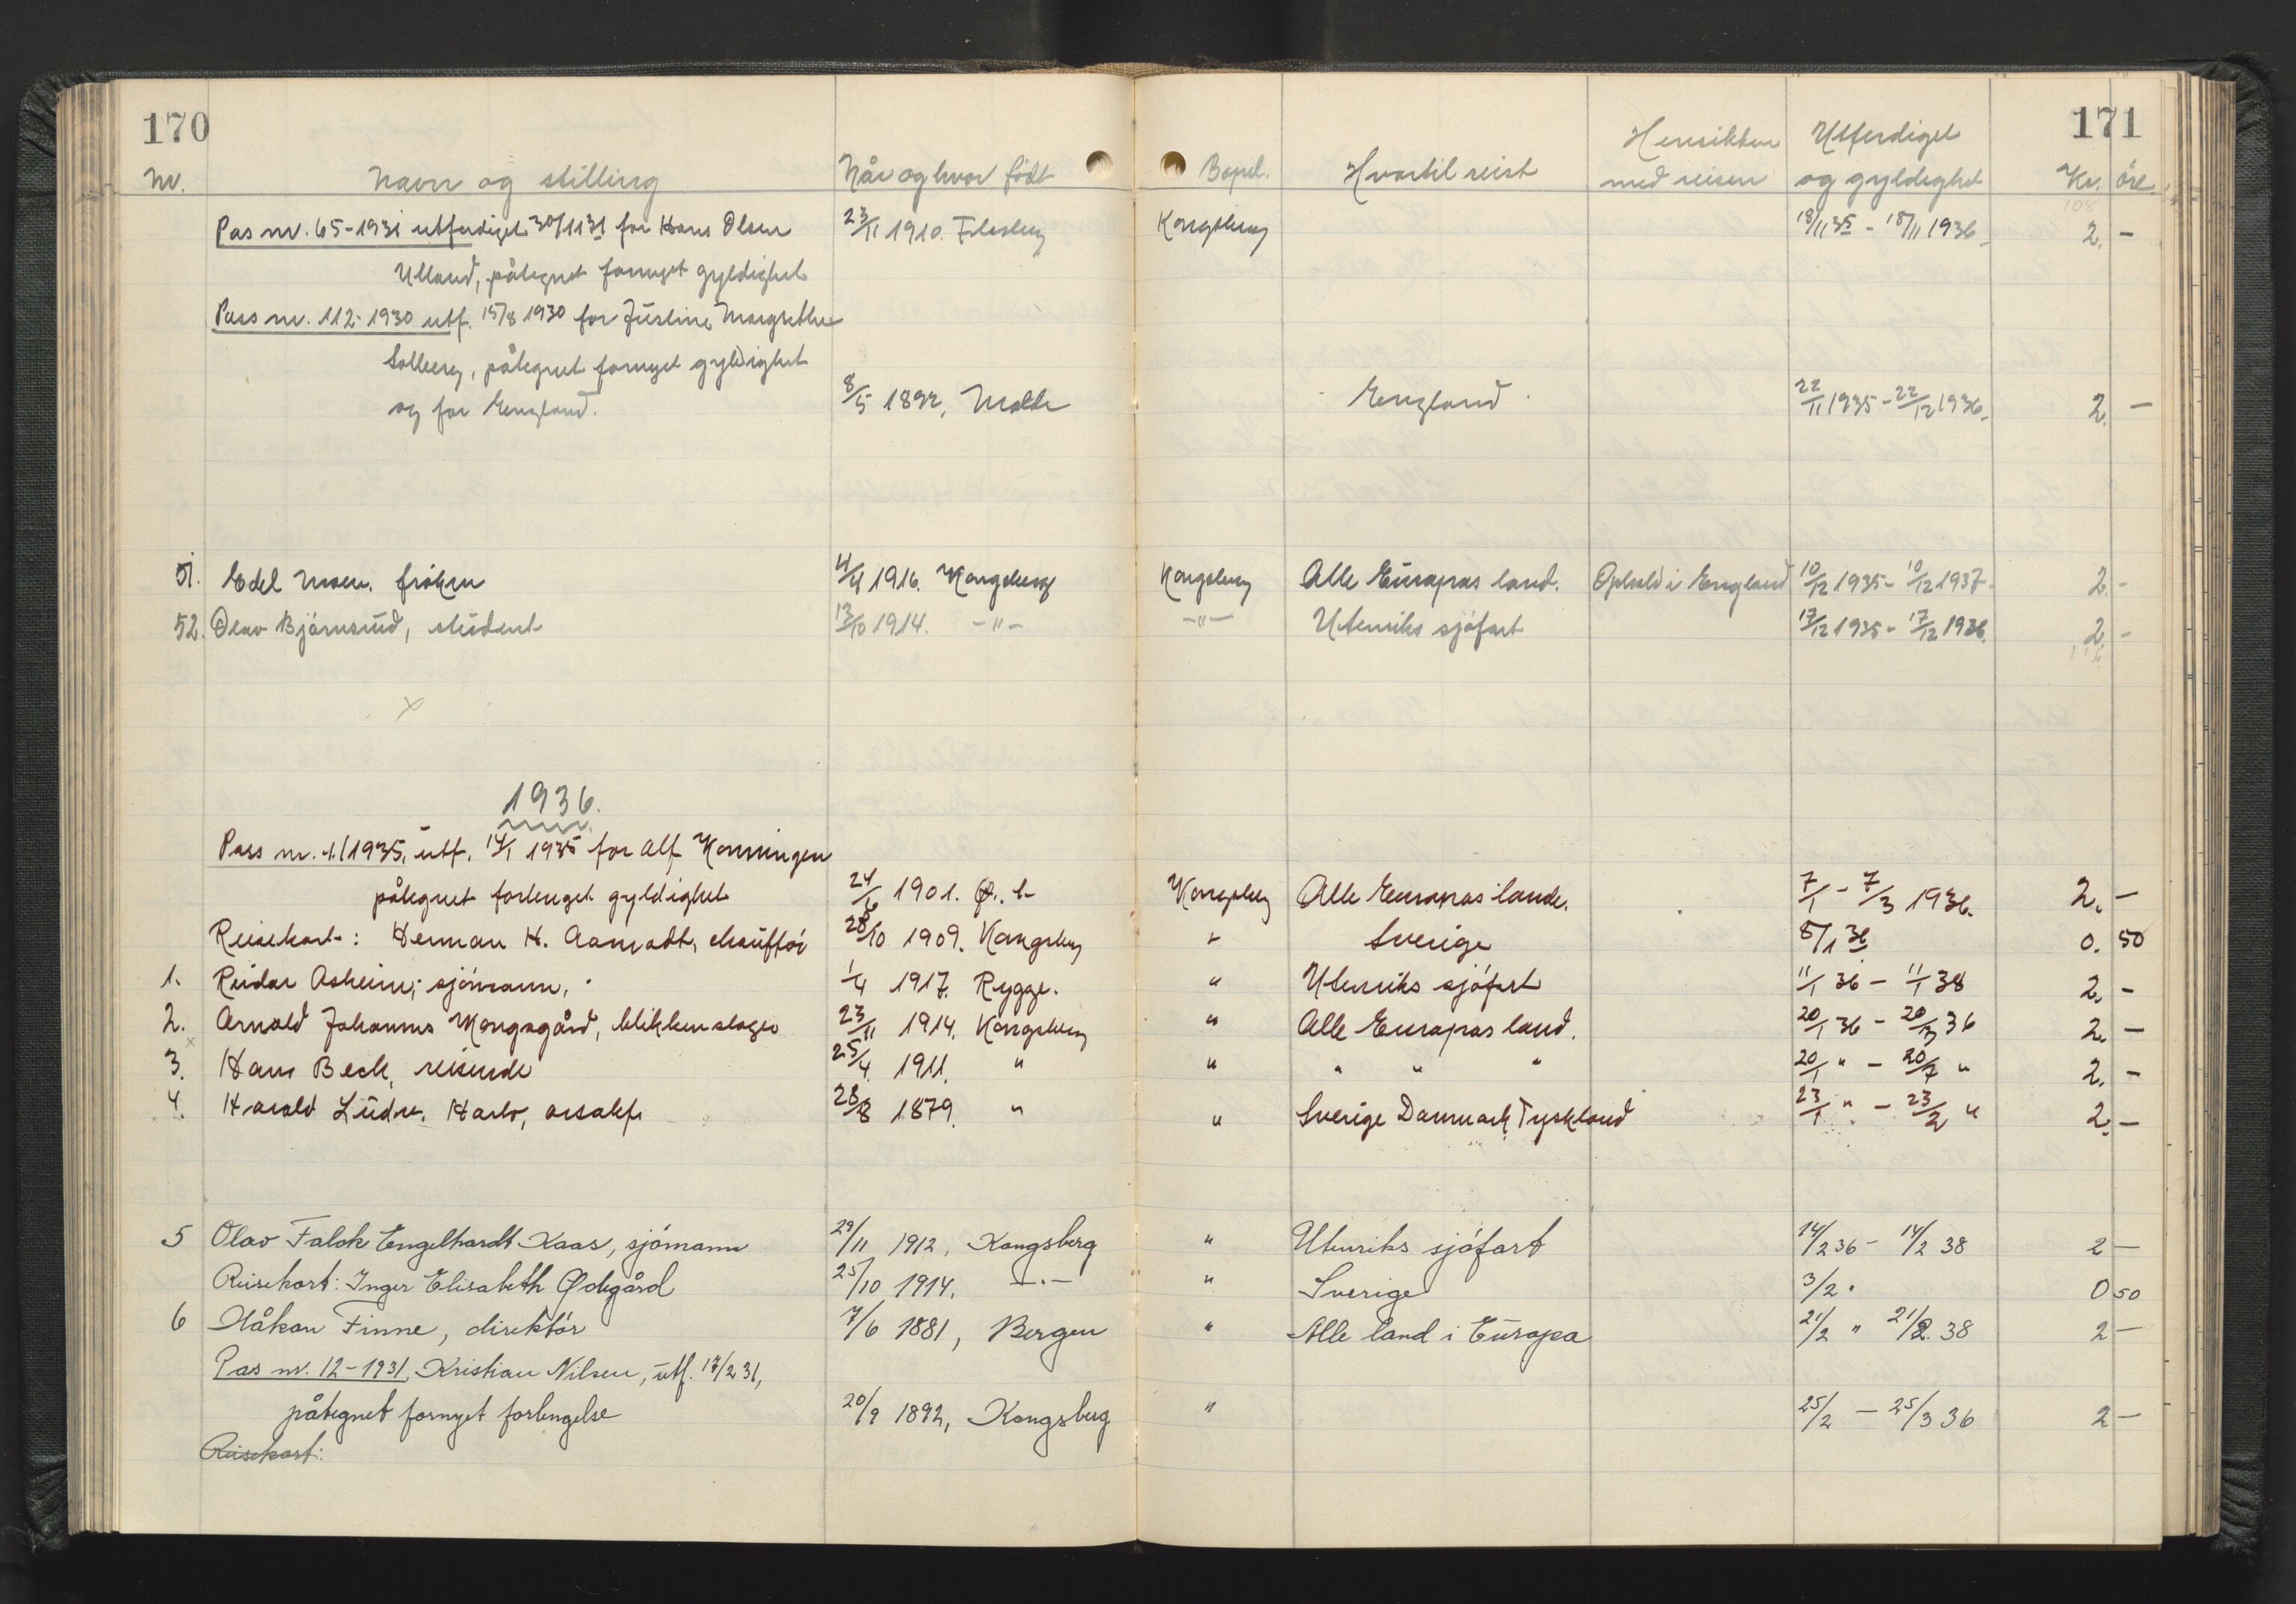 170 171
Nr. Navn og stilling Når og hvor født Bopel. Hvortil reist Hensikten med reisen Utferdiget og gyldighet Kr. öre
108
Pas nr. 65-1931 utferdiget 30/11 31 for Hans Olsen 23/11 1910. Flesberg Kongsberg 18/11 35 - 18/11 1936. 2. -
Ulland, påtegnet fornyet gyldighet
Pass nr. 112-1930 utf. 15/8 1930 for Justine Margrethe
Solberg, påtegnet fornyet gyldighet
og for England. 8/5 1892, Molde England 22/11 1935 - 22/12 1936. 2. -
51. Edel Moen, fröken 4/4 1916. Kongsberg Kongsberg Alle Europas land. Ophold i England 10/12 1935 - 10/12 1937. 2. -
52. Olav Björnsrud, student 13/10 1914. -"- -"- Utenriks sjöfart 17/12 1935 - 17/12 1936. 2. -
116
x
1936.
Pass nr. 1/1935, utf. 14/1 1935 for Alf Konningen
påtegnet forlenget gyldighet 24/6 1901. Kongsberg Alle Europas lande. 7/1 - 7/3 1936. 2. -
Reisekort: Herman H. Aamodt, chaufför 28/10 1909. Kongsberg " Sverige 8/1 36 0. 50
1. Reidar Asheim, sjömann, 1/4 1917. Rygge. " Utenriks sjöfart 11/1 36 - 11/1 38 2. -
2. Arnold Johannes Mongsgård, blikkenslager 23/11 1914. Kongsberg " Alle Europas land. 20/1 36 - 20/3 36 2. -
x
3. Hans Beck, reisende 25/4 1911. " " " " " 20/1 " - 20/7 " 2. -
4. Harald Ludv. Harlo, 28/8 1879. " " Sverige Danmark, Tyskland 23/1 " - 23/2 " 2. -
5 Olav Falck Engelhardt Kaas, sjömann 29/11 1912, Kongsberg " Utenriks sjöfart 14/2 36 - 14/2 38 2 -
Reisekort: Inger Elisabeth Ødegård 25/10 1914. -"- " Sverige 3/2 " 0 50
6 Håkon Finne, direktör 7/6 1881, Bergen " Alle land i Europa 21/2 " 21/2 38 2 -
Pas nr. 12-1931, Kristian Nilsen, utf. 17/2 31,
påtegnet fornyet forlengelse 20/9 1892, Kongsberg " 25/2 - 25/3 36 2 -
Reisekort: